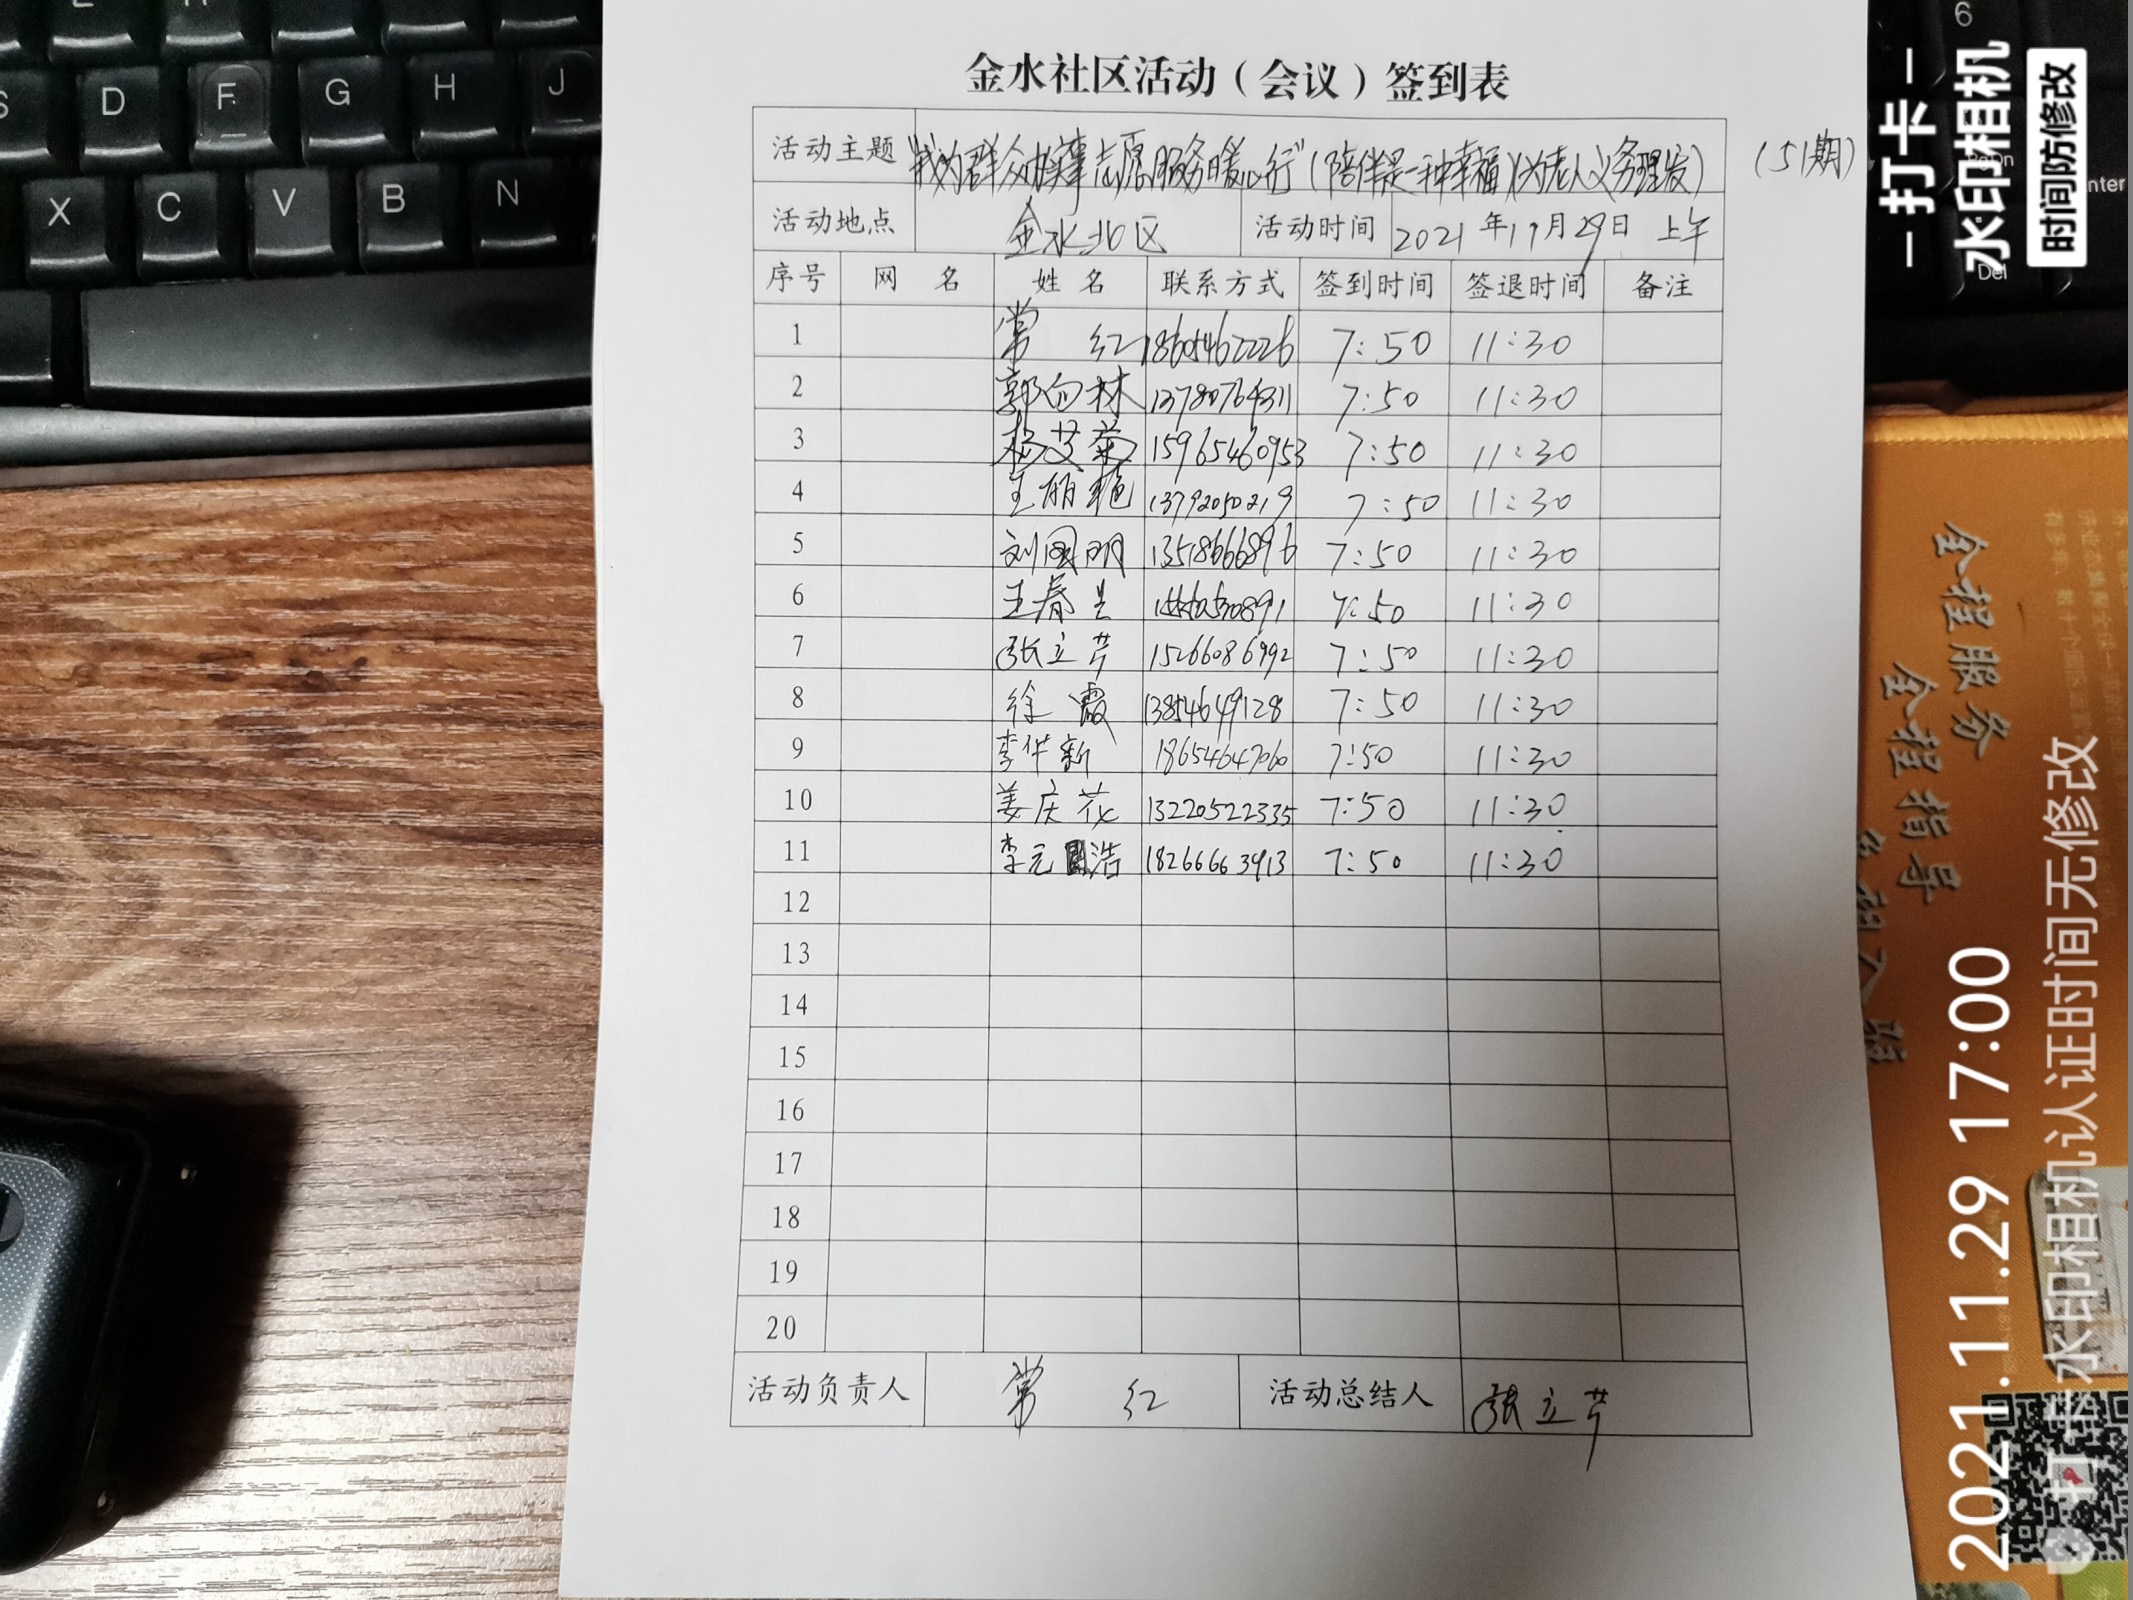 金水社区活动（会议）签到表
活动主题 "我为群众办实事 志愿服务暖心行"（陪伴是一种幸福）（为老人义务理发）（51期）
活动地点 金水北区 活动时间 2021年11月29日 上午
序号 网 名 姓 名 联系方式 签到时间 签退时间 备注
1 常 红 18605462226 7:50 11:30
2 郭向林 13780764311 7:50 11:30
3 杨艾菊 15965460953 7:50 11:30
4 王丽艳 13792050219 7:50 11:30
5 刘国明 13518666896 7:50 11:30
6 王春兰 7:50 11:30
7 张立芹 15266086992 7:50 11:30
8 徐霞 13854649128 7:50 11:30
9 李华新 18654647060 7:50 11:30
10 姜庆花 13220522335 7:50 11:30
11 李元浩 18266663913 7:50 11:30
12
13
14
15
16
17
18
19
20
活动负责人 常 红 活动总结人 张立芹
D F G H J
X C V B N
6
Del
全程服务
全程指导
－打卡－
水印相机
时间防修改
2021.11.29 17:00
打卡水印相机认证时间无修改